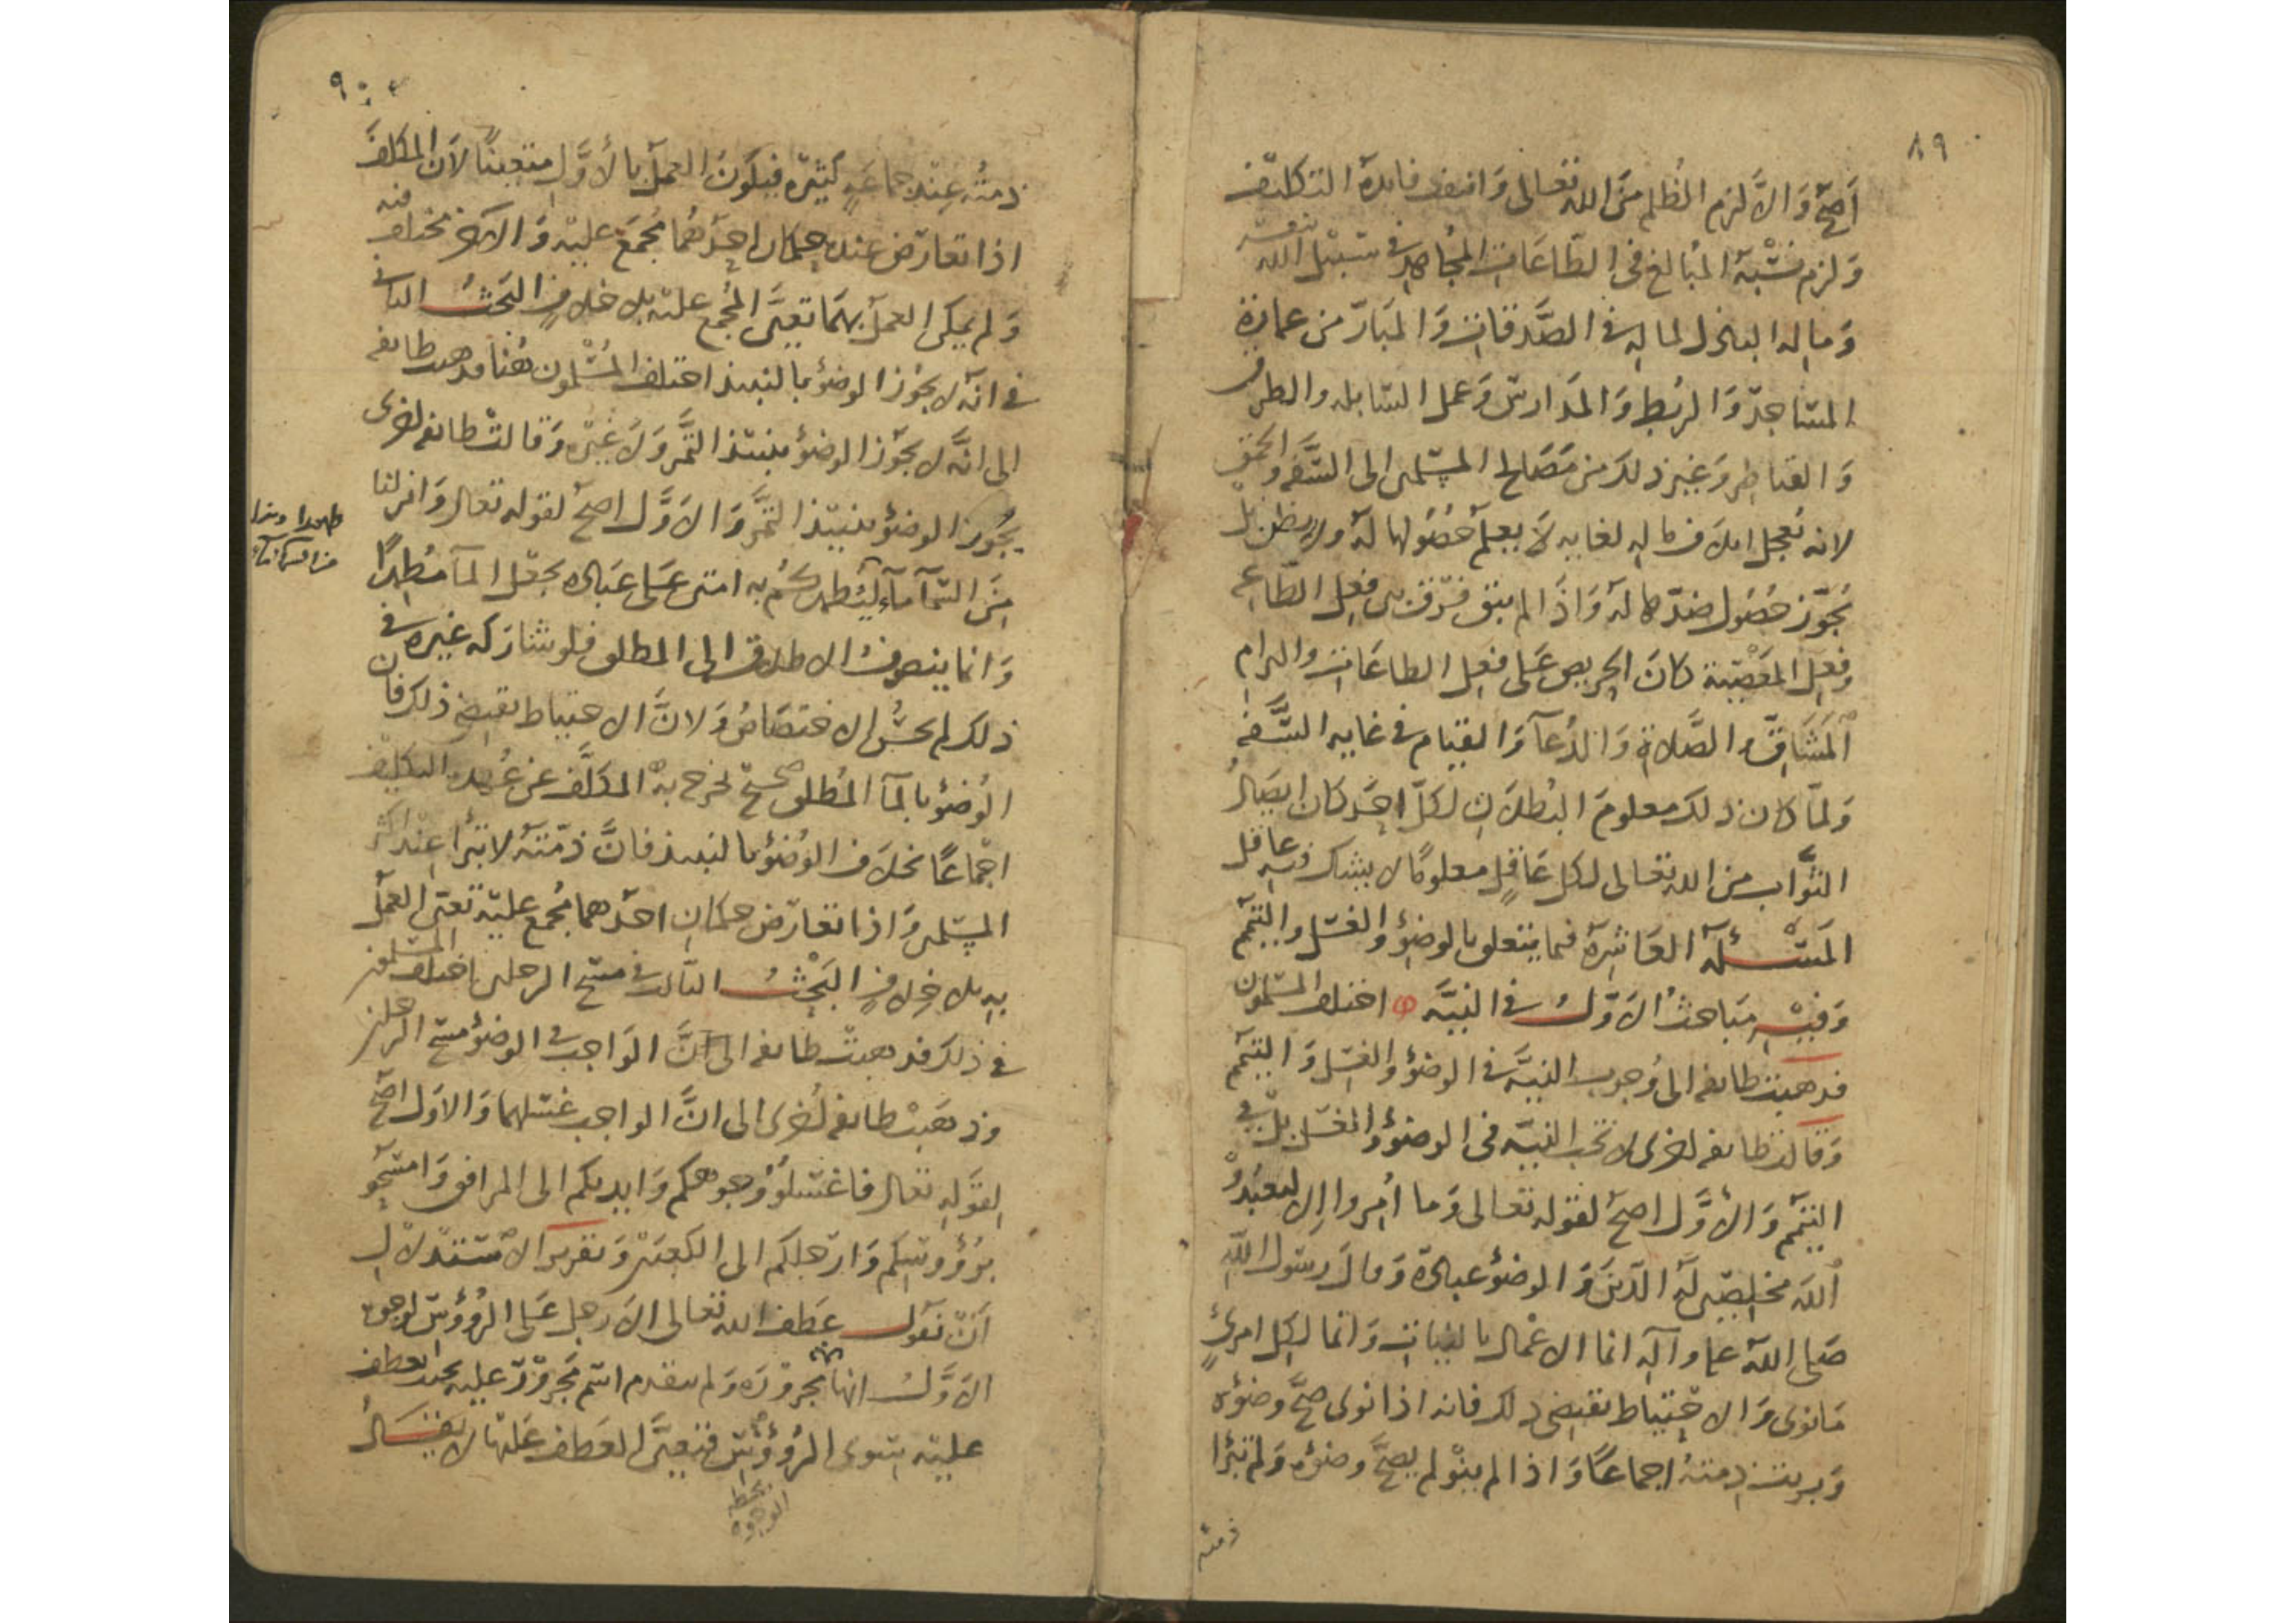 ٨٩
أصحّ وَالاَّ لزم الظُلم مِنَ الله تعالى وَانتفت فايدة التكليف
وَلزم نسْبة المُبالغ فى الطّاعَات المجُاهِد فى سَبيْل الله بنفسه
وَمالِه الباذل لمالِهِ فى الصَّدقاتِ وَالمَبَارّ من عمارَة
المسَاجدِ وَالربُطِ وَالمَدارسِ وَعمل السَابله والطرق
وَالقناطِر وَغير ذلكَ من مَصَالح المسِلمين الى السَّفه وَالحمق
لانه تعجل اتلاف مالِهِ لغايه لاَ يعلَم حُصُولها لَهُ ولا يظن بل
يُجوّز حصُول ضدّها لَهُ وَاذَا لم يبق فرق بين فعِل الطّاعَه
وفعِل المَعْصِيَة كانَ الحِريص عَلى فعِل الطاعَات والتزام
المَشَاقّ والصَّلاة وَالدُعَآ وَالقيَام فى غايه السَّفه
وَلمّا كان ذلكَ معلومَ البُطلان لكلّ احَد كان ايصَالُ
الثَّواب من الله تعالى لكلّ عَاقِلٍ معلومًا لا يشك فيه عاقل
المَسْئلَة العَاشِرة فيما يتعلق بالوضؤ وَالغسَل والتيمّم
وَفيْه مبَاحث الاَوّلُ فى النيَّه اختلف المسْلمون
فذهبت طايفه الى وُجوب النيَّة فى الوضؤ وَالغسِل وَالتيمّم
وَقالت طايفه اخرى لا تجب النيّه فى الوضؤ وَالغسَل بلْ فى
التيمّم وَالأوَّل اصحّ لقوله تعالى وَما اُمِروا اِلا ليعبُدُوْ
اَللهَ مخلِصيْن لَهُ الدّينَ وَالوضؤ عبادَة وَقالَ رسَول اللهِ
صَلى اللهُ عليه وآلِهِ انما الاعْمال بالنيات وَانما لكِل امرئٍ
مَا نوى وَالاحْتِيَاط يقتضى ذلكَ فانه اذا نوى صَحَّ وضؤه
وَبريت ذمتهُ اجماعًا وَاذا لم ينْو لم يصحَّ وضؤه وَلم تبرَا
ذمته
٩٠
ذمتُه عِنْد جماعَةٍ كثيْرة فيكَونَ العمَل بالأوَّل متعينًا لأن المكلفَ
اذا تعارَضَ عنده حِكمان احدَهُما مُجمَع عليْه وَالآخر مختلف فيه
وَلم يمكن العمَل بهمَا تعيَّن المجُمَع عليْه بلا خلافٍ البَحثُ الثانى
فى انّه لا يجوُز الوضؤ بالنبيذ اختلف المسْلمون هُنا فذهبت طايفه
الى انَّه لا يجَوز الوضؤ بنبيْذ التَّمر وَلا غيْره وَقالت طايفه اخرى
يجُوز الوضؤ بنبيْذ التمَّر وَالاوَّل اصحّ لقوله تعالى وَانزلنا
مِنَ السّمآ مآء ليُطهرَكُمْ به امتن عَلى عَباده بجعْل المآ مُطهِرًا
وَانما ينصرفُ الاطلاق الى المطلق فلو شارَكه غيره فى
ذلك لم يحسُن الاختصَاصُ وَلانَّ الاحتياط يقتضى ذلكَ فان
الوُضؤ بالمآ المُطلق صحيح يخرج به المكلَّف عن عُهدَة التكليف
اجْماعًا بخلاَف الوُضؤ بالنبيذ فانَّ ذمّتَهُ لا تبرَأ عِنْد اكثر
المسِلمين وَاذا تعارَض حكمان احدَهما مُجمع عليْه تعيَن العمَل
بِهِ بلا خِلافٍ البَحْثُ الثالث فى مسْح الرجلين اختلف المسْلمون
فى ذلكَ فذهبتْ طايفه الى انَّ الوَاجب فى الوضؤ مسْح الرجلين
وَذهَبتْ طايفه اُخرى الى انَّ الواجب غسْلهما وَالاوَل اصحّ
لقَوْلِهِ تعالى فاغسْلوُؤ وُجوهكم وَايديكم الى المرافق وَامسَحو
برؤُوسَكم وَارَجلكم الى الكعبَيْن وَتقرير الاسْتدْلال
اَنْ نَقَول عَطف الله تعالى الاَرجل عَلى الرُؤوسَ لوجوه
الاَوَّلُ انها مجرُوْرَة وَلم يتقدم اسْم مَجروْر عليه يجب العطف
عليْه سَوى الرُؤوْس فتعيَّن العَطف عَليْها لا يقَالُ